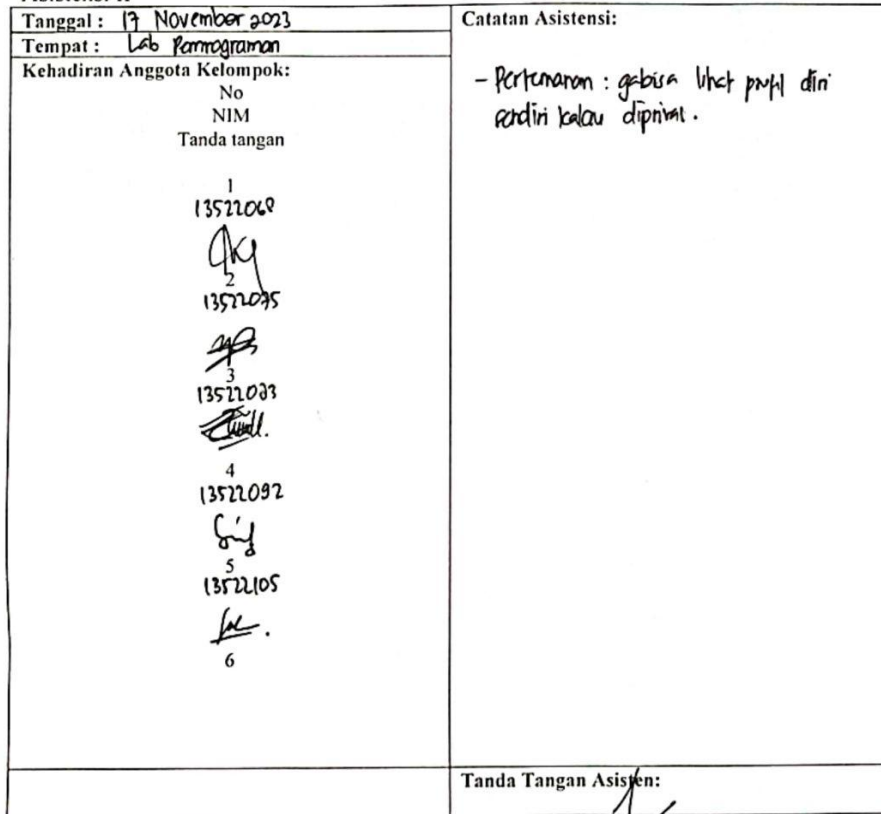 Tanggal : 17 November 2023
Tempat : Lab Pemrograman
Kehadiran Anggota Kelompok:
No
NIM
Tanda tangan
1
13522068
2
13522075
3
13522083
4
13522092
5
13522105
6
Catatan Asistensi:
- Pertemanan : gabisa lihat profil diri
sendiri kalau diprivat.
Tanda Tangan Asisten: